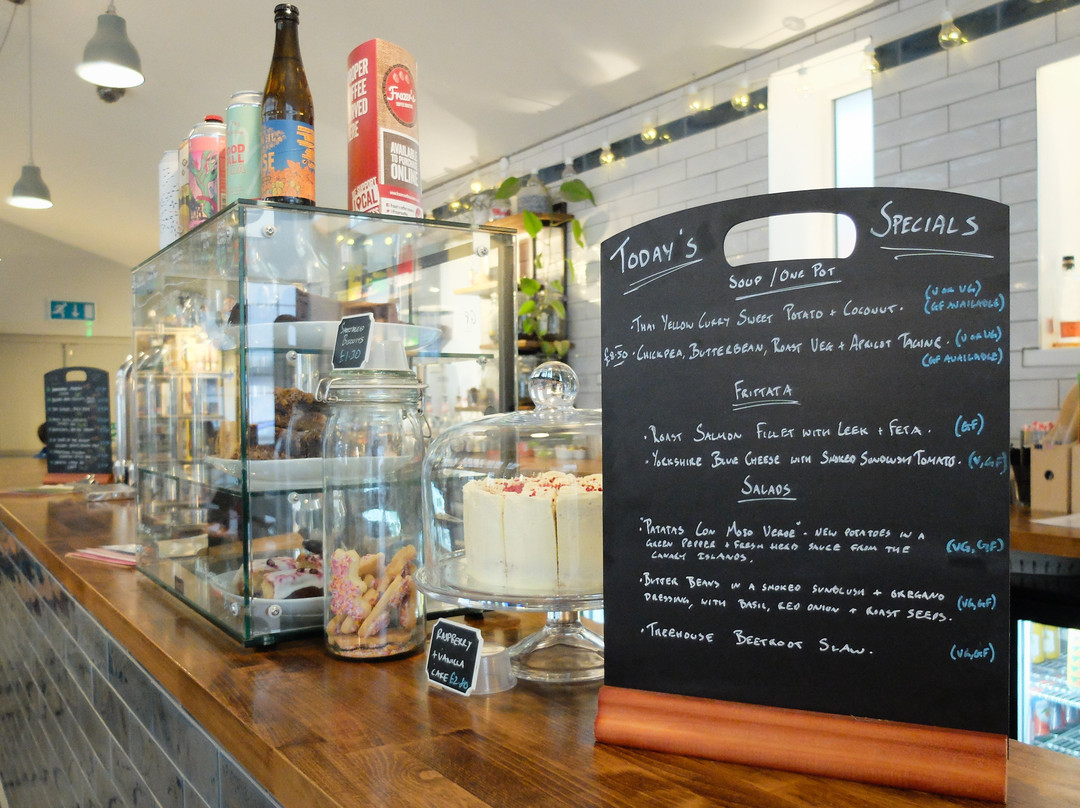 TODAY'S SPECIALS
SOUP / ONE POT
(V OR VG)
• THAI YELLOW CURRY SWEET POTATO + COCONUT. (GF AVAILABLE)
£8.50 • CHICKPEA, BUTTERBEAN, ROAST VEG + APRICOT TAGINE. (V OR VG)
(GF AVAILABLE)
FRITTATA
• ROAST SALMON FILLET WITH LEEK + FETA. (GF)
• YORKSHIRE BLUE CHEESE WITH SMOKED SUNBLUSH TOMATO. (V, GF)
SALADS
• "PATATAS CON MOJO VERDE" - NEW POTATOES IN A
GREEN PEPPER + FRESH HERB SAUCE FROM THE (VG, GF)
CANARY ISLANDS.
• BUTTER BEANS IN A SMOKED SUNBLUSH + OREGANO
DRESSING, WITH BASIL, RED ONION + ROAST SEEDS. (VG, GF)
• TREEHOUSE BEETROOT SLAW. (VG, GF)
RASPBERRY
+ VANILLA
CAKE
BISCUITS
£1.30
AVAILABLE
TO PURCHASE
ONLINE
LOCAL